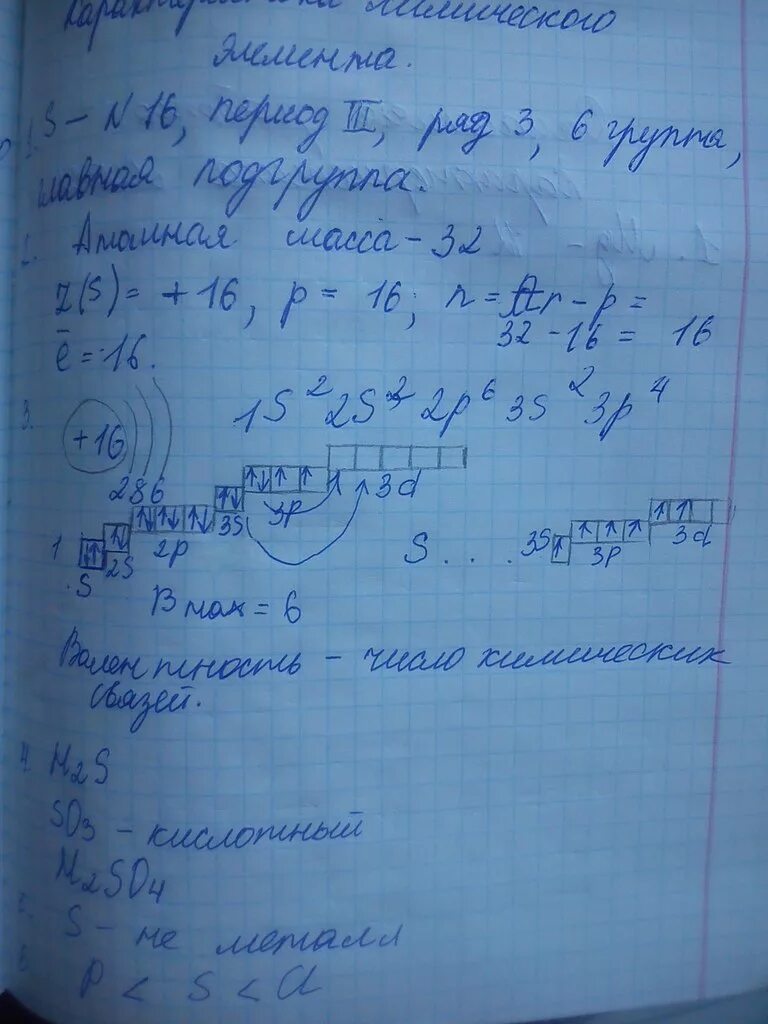 Характеристика химического
элемента.
1. S – N 16, период III, ряд 3, 6 группа,
главная подгруппа.
2. Атомная масса – 32
Z(S) = +16, p = 16; n = Ar – p =
32 – 16 = 16
ē = 16.
3. +16 1S² 2S² 2p⁶ 3S² 3p⁴
2 8 6
↑↓ ↑ ↑ 3d
↑↓ ↑↓ ↑↓ ↑↓ 3S 3p
1S ↑↓ 2S ↑↓ 2p
S . . . . 3S ↑ 3p ↑ ↑ ↑ 3d ↑ ↑
В max = 6
Валентность – число химических
связей.
4. H₂S
SO₃ – кислотный
H₂SO₄
5. S – не металл
6 P < S < Cl